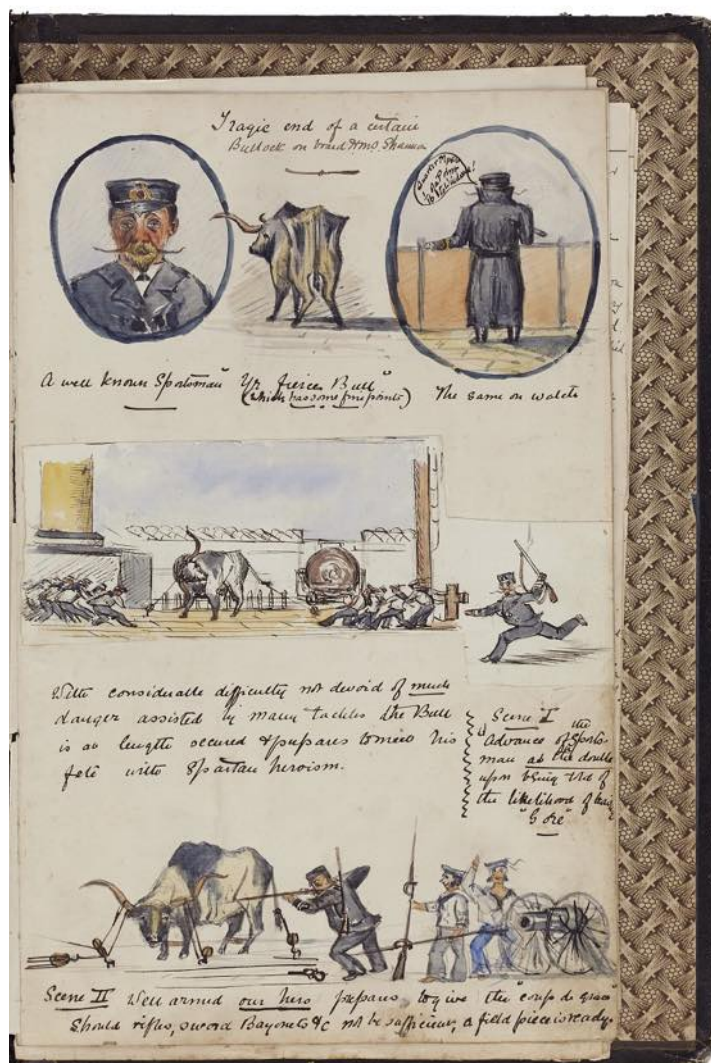 Tragic end of a certain
Bullock on board HMS Shannon
A well known Sportsman"
Yr fierce Bull"
(which has some fine points)
The same on watch
With considerable difficulty not devoid of much
danger assisted by many tackles the Bull
is at length secured & prepares to meet his
fate with Spartan heroism.
Scene I the
"Advance of Sports-
man at the double
upon being told of
the likelihood of
"Gore"
Scene II Well armed our hero prepares to give the "coup de grace"
Should rifles, sword Bayonets &c not be sufficient, a field piece is ready.